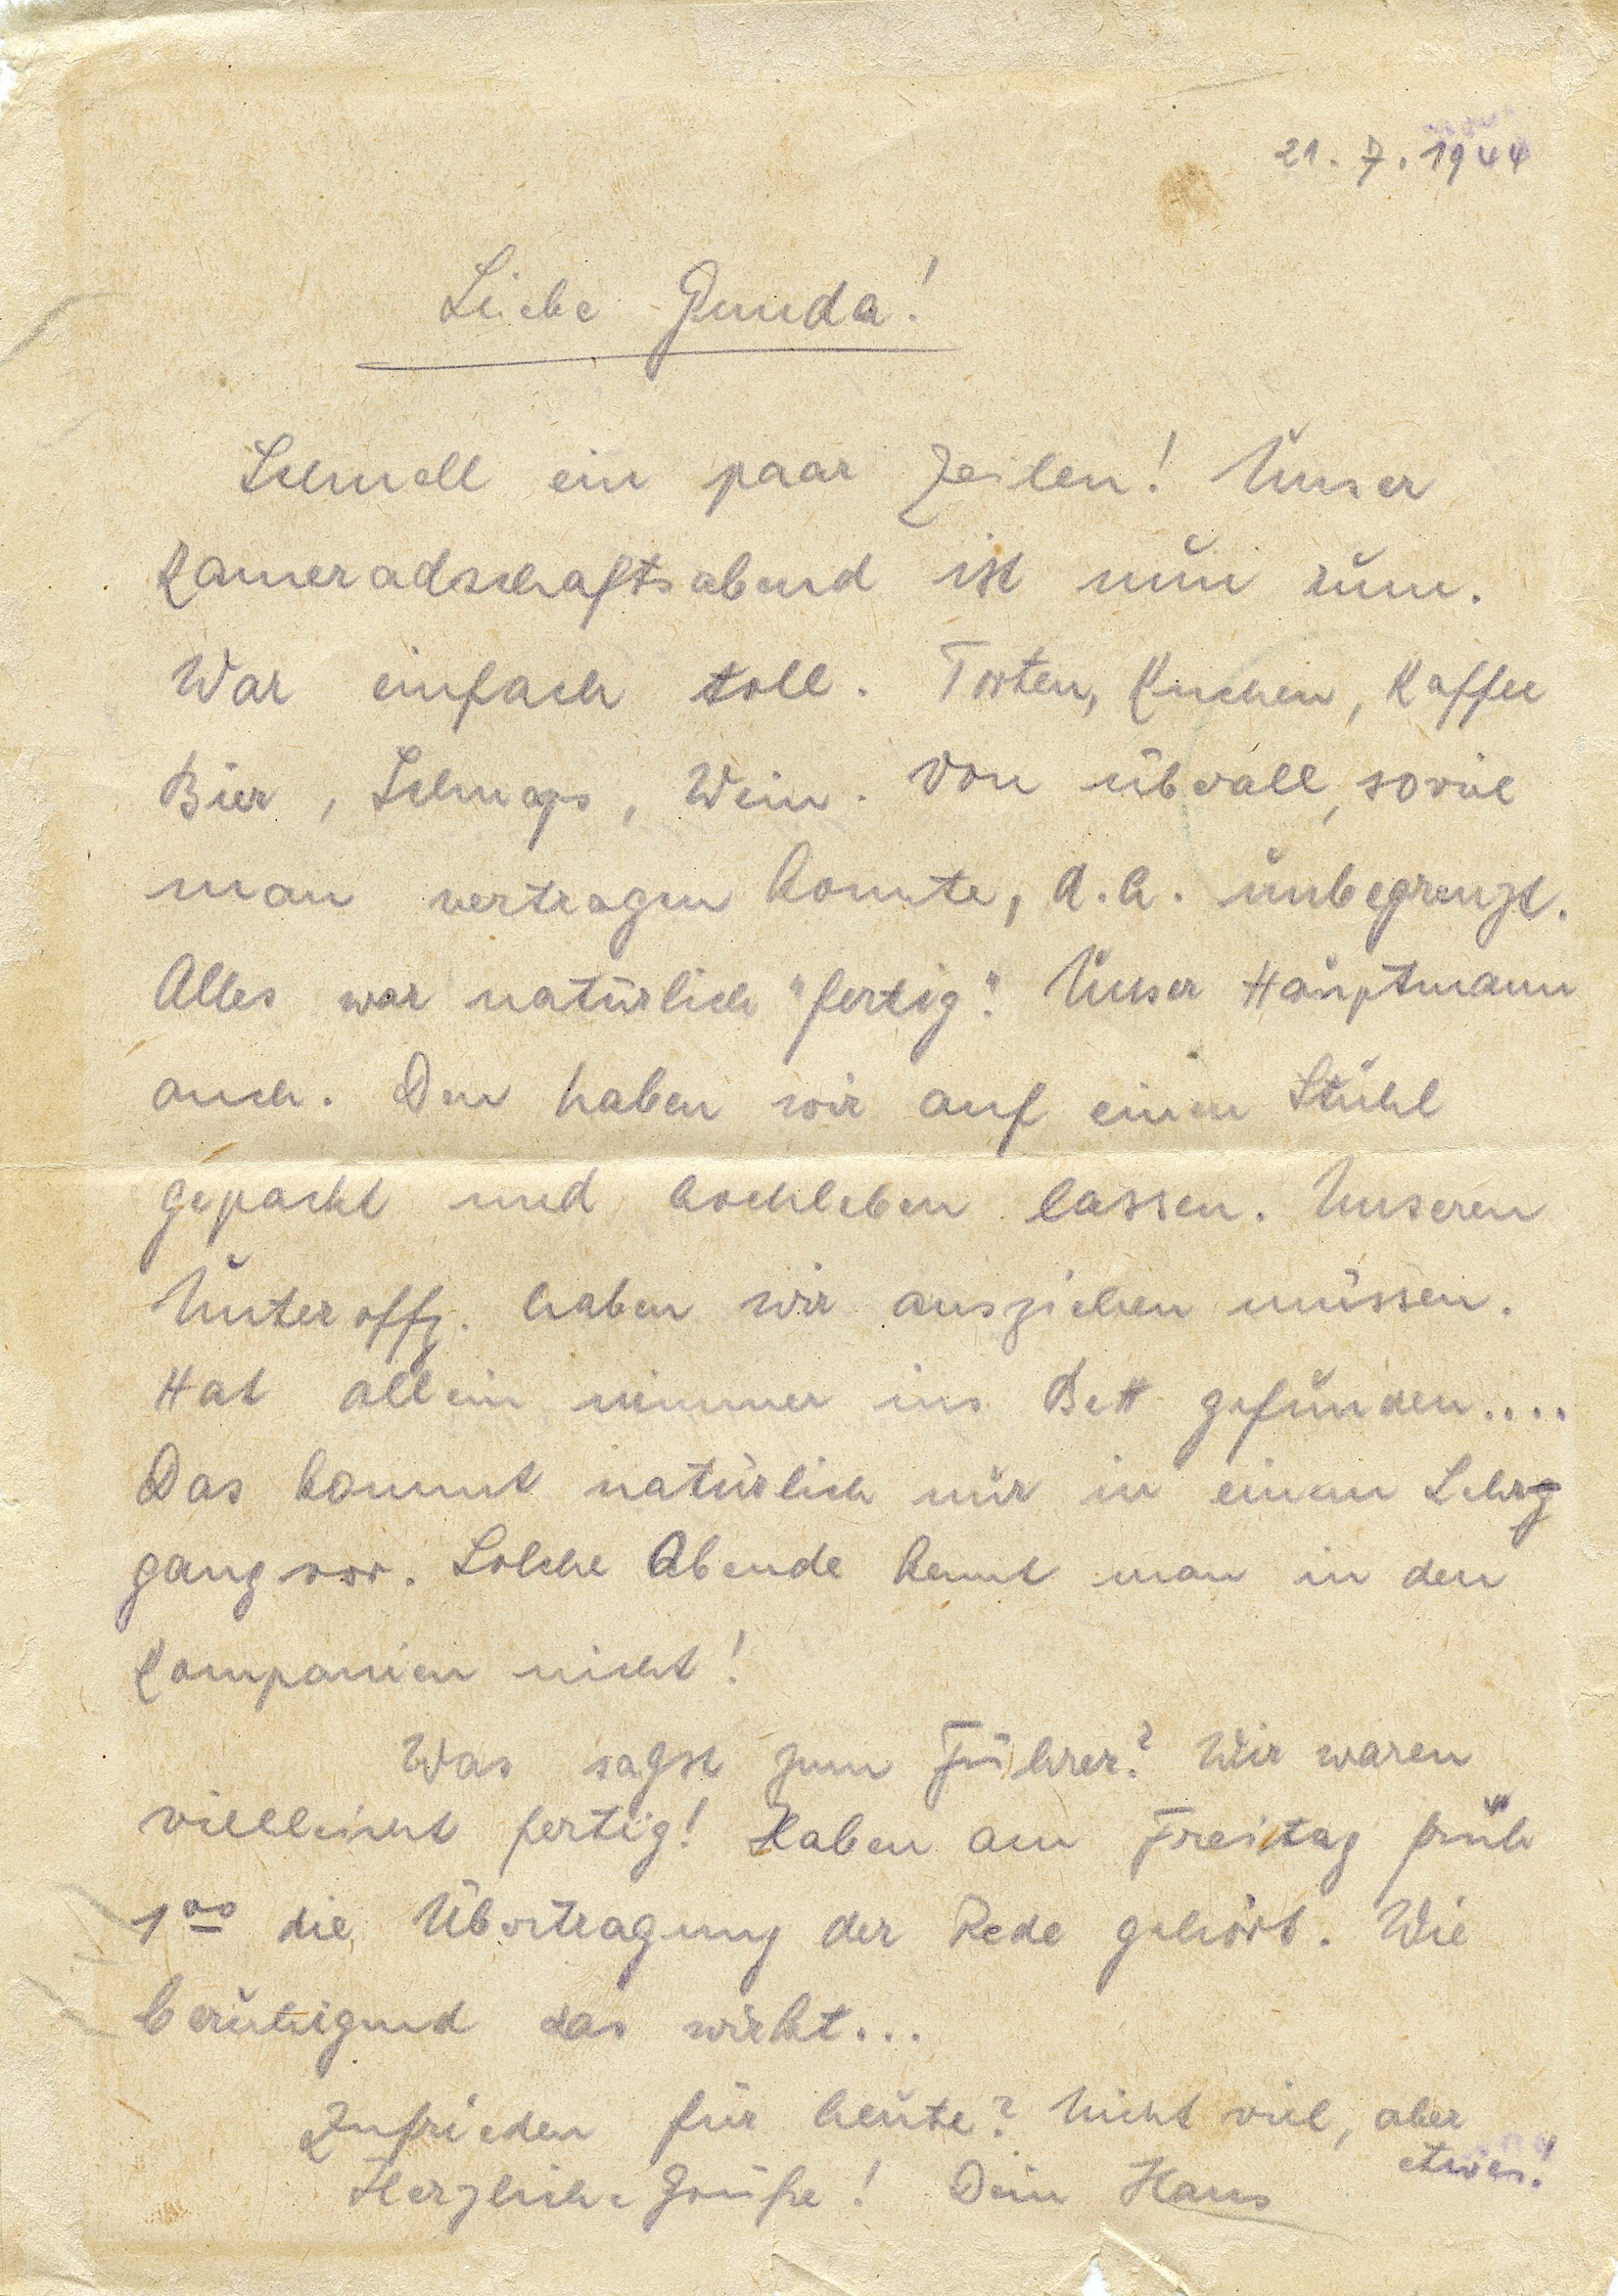 21. 7. 1944
Liebe Gunda!
Schnell ein paar Zeilen! Unser
Kameradschaftsabend ist nun rum.
War einfach toll. Torten, Kuchen, Kaffee
Bier, Schnaps, Wein. Von überall, soviel
man vertragen konnte, d.h. unbegrenzt.
Alles war natürlich "fertig". Unser Hauptmann
auch. Den haben wir auf einen Stuhl
gepackt und hochleben lassen. Unseren
Unteroffz. haben wir ausziehen müssen.
Hat allein nimmer ins Bett gefunden....
Das kommt natürlich nur in einem Lehrg
gang vor. Solche Abende kennt man in den
Kompanien nicht!
Was sagst zum Führer? Wir waren
vielleicht fertig! Haben am Freitag früh
1⁰⁰ die Übertragung der Rede gehört. Wie
beruhigend das wirkt...
Zufrieden für heute? Nicht viel, aber
etwas!
Herzliche Grüße! Dein Hans